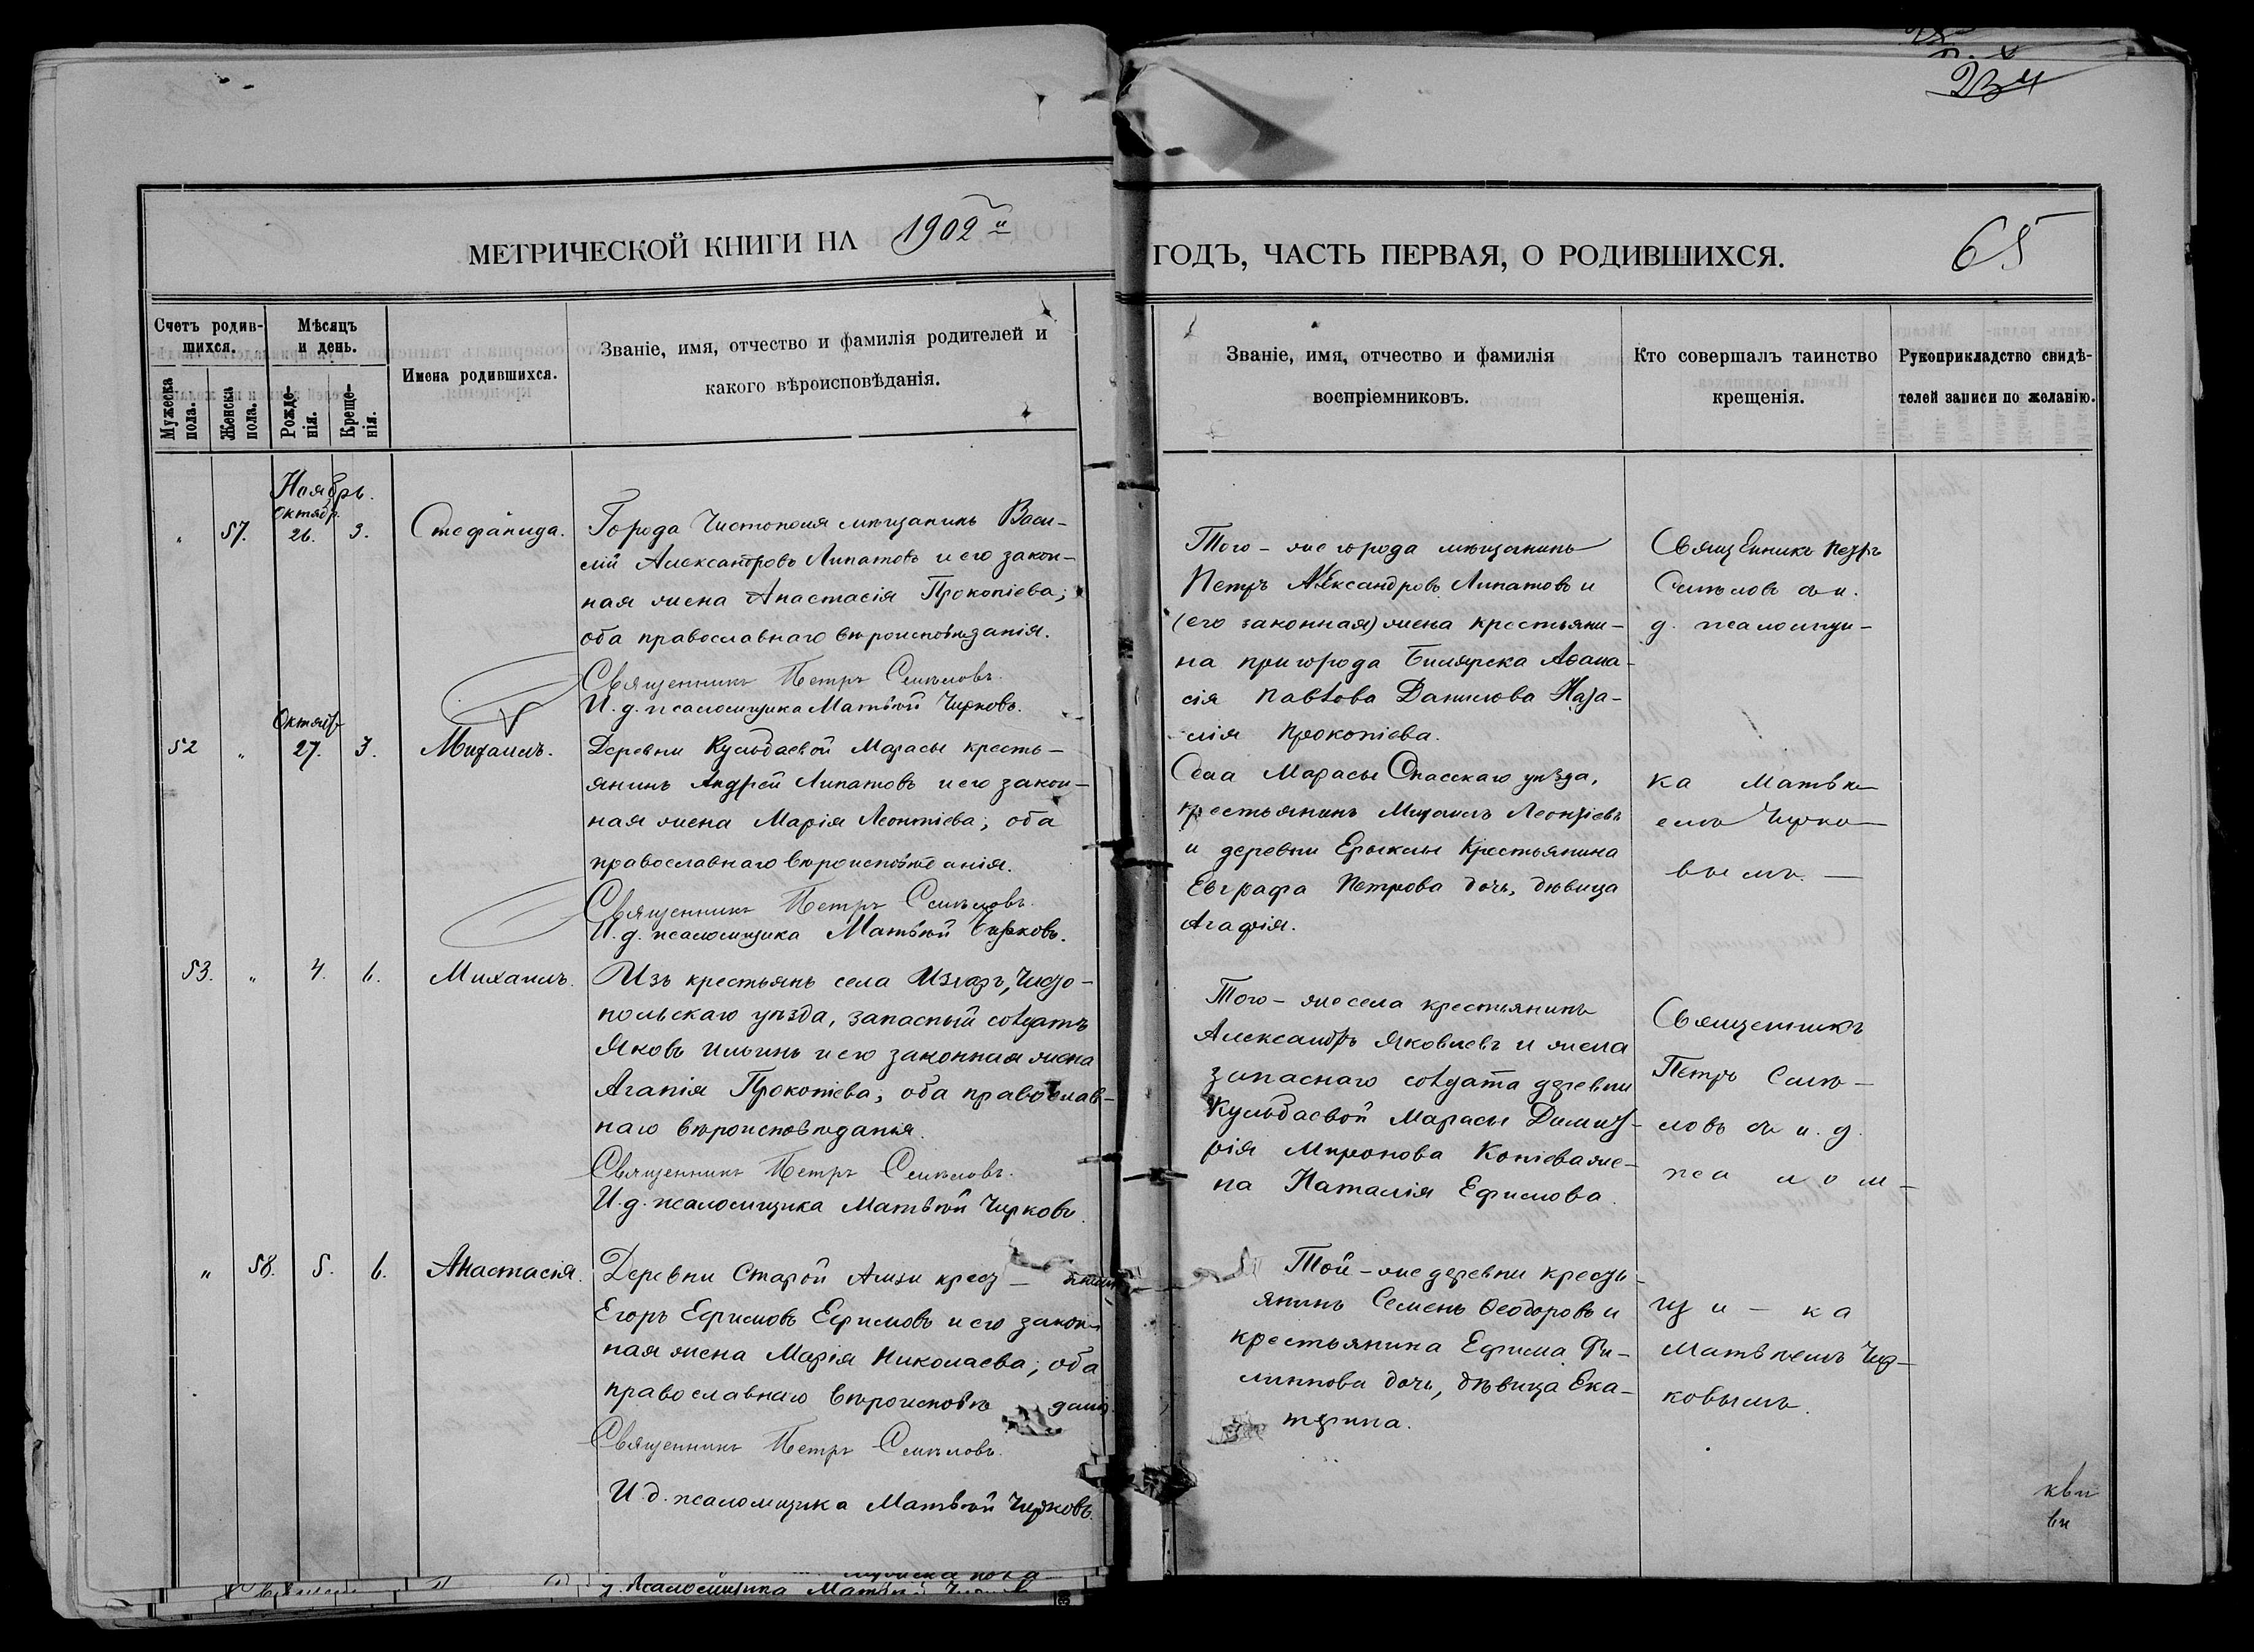 234
МЕТРИЧЕСКОЙ КНИГИ НА 1902й
ГОДЪ, ЧАСТЬ ПЕРВАЯ, О РОДИВШИХСЯ.
65
Счетъ родив-
шихся.
Мужеска
пола.
Женска
пола.
Мѣсяцъ
и день.
Рожде-
нія.
Креще-
нія.
Имена родившихся.
Званіе, имя, отчество и фамилія родителей и
какого вѣроисповѣданія.
Званіе, имя, отчество и фамилія
воспріемниковъ.
Кто совершалъ таинство
крещенія.
Рукоприкладство свидѣ-
телей записи по желанію.
Ноябрь.
Октябр.
" 57. 26. 3. Стефанида.
Города Чистополя мѣщанинъ Васи-
лій Александровъ Липатовъ и его закон-
ная жена Анастасія Прокопіева;
оба православнаго вѣроисповѣданія.
Священникъ Петръ Смѣловъ.
И. д. псаломщика Матвѣй Чирковъ.
Того-же города мѣщанинъ
Петръ Александровъ Липатовъ и
(его законная) жена крестьяни-
на пригорода Билярска Аѳана-
сія Павлова Данилова Ната-
лія Прокопіева.
Священникъ Петръ
Смѣловъ съ и.
д. псаломщи-
Октябр
52 " 27. 3. Михаилъ.
Деревни Кульбаевой Марасы кресть-
янинъ Андрей Липатовъ и его закон-
ная жена Марія Леонтіева; оба
православнаго вѣроисповѣданія.
Священникъ Петръ Смѣловъ.
И. д. псаломщика Матвѣй Чирковъ.
Села Марасы Спасскаго уѣзда,
крестьянинъ Михаилъ Леонтіевъ
и деревни Ерыклы Крестьянина
Евграфа Петрова дочь, дѣвица
Агафія.
ка Матвѣ
емъ Чирко
вымъ. —
53. " 4. 6. Михаилъ.
Изъ крестьянъ села Изгаръ, Чисто-
польскаго уѣзда, запасный солдатъ
Яковъ Ильинъ и его законная жена
Агапія Прокопіева; оба православ-
наго вѣроисповѣданія.
Священникъ Петръ Смѣловъ.
И. д. псаломщика Матвѣй Чирковъ.
Того-же села крестьянинъ
Александръ Яковлевъ и жена
запаснаго солдата деревни
Кульбаевой Марасы Димит-
рія Миронова Копіева же-
на Наталія Ефимова.
Священникъ
Петръ Смѣ-
ловъ съ и. д.
псалом-
" 58. 5. 6. Анастасія.
Деревни Старой Амзи крест- янинъ
Егоръ Ефимовъ Ефимовъ и его закон-
ная жена Марія Николаева; оба
православнаго вѣроисповѣ данія.
Священникъ Петръ Смѣловъ.
И. д. псаломщика Матвѣй Чирковъ.
Той-же деревни кресть-
янинъ Семенъ Ѳеодоровъ и
крестьянина Ефима Фи-
липпова дочь, дѣвица Ека-
терина.
щи - ка
Матвѣемъ Чир-
ковымъ.